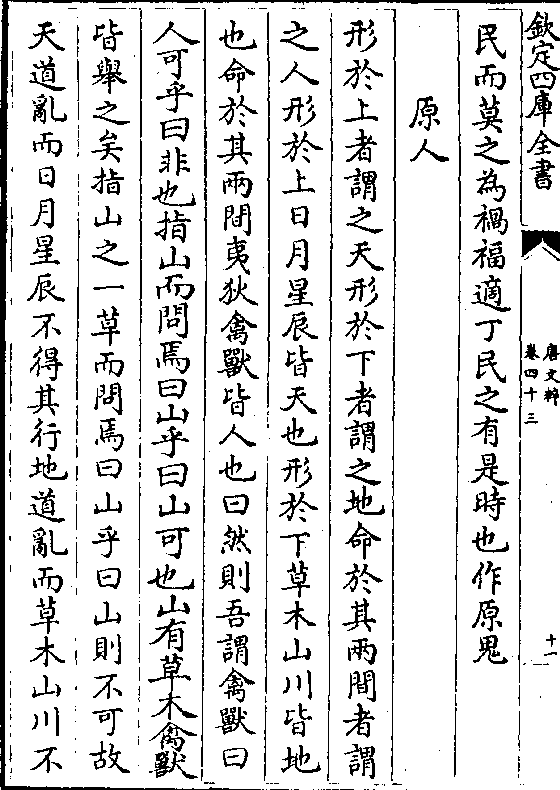 欽定四庫全書
唐文粹
卷四十三
十一
民而莫之為禍福適丁民之有是時也作原鬼
原人
形於上者謂之天形於下者謂之地命於其兩間者謂
之人形於上日月星辰皆天也形於下草木山川皆地
也命於其兩間夷狄禽獸皆人也曰然則吾謂禽獸曰
人可乎曰非也指山而問焉曰山乎曰山可也山有草木禽獸
皆舉之矣指山之一草而問焉曰山乎曰山則不可故
天道亂而日月星辰不得其行地道亂而草木山川不